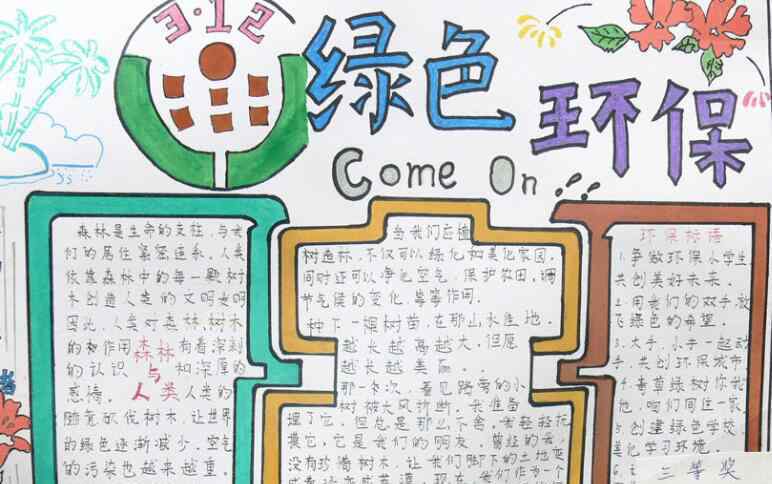 3·12
绿色
环保
Come On
森林是生命的支柱,与我
们的居住紧密连系,人类
依靠森林中的每一颗树
木创造人类的文明发明
因此,人类对森林,树木
的和作用森林有着深刻
的认识与和深厚的
感情。人类人类的
随意砍伐树木,让世界
的绿色逐渐减少,空气
的污染也越来越重。
当我们在植
树造林,不仅可以绿化和美化家园,
同时还可以净化空气,保护农田,调
节气候的变化,等等作用。
种下一棵树苗,在那山水佳地。
越长越高越大,但愿
越长越美丽。
那一次,看见路旁的小
树被大风折断,我准备
埋了它,但总是那么下舍,我轻轻抚
摸它,它是我们的朋友,曾经的我,
没有珍惜树木,让我们脚下的土地变
环保标语
1.争做环保小学生,
共创美好未来。
2.用我们的双手,放
飞绿色的希望。
3.大手,小手一起动
手,共创环保城市
4.尊尊绿树你我
他,咱们同住一家
5.创建绿色学校,
美化学习环境。
6.
三等奖